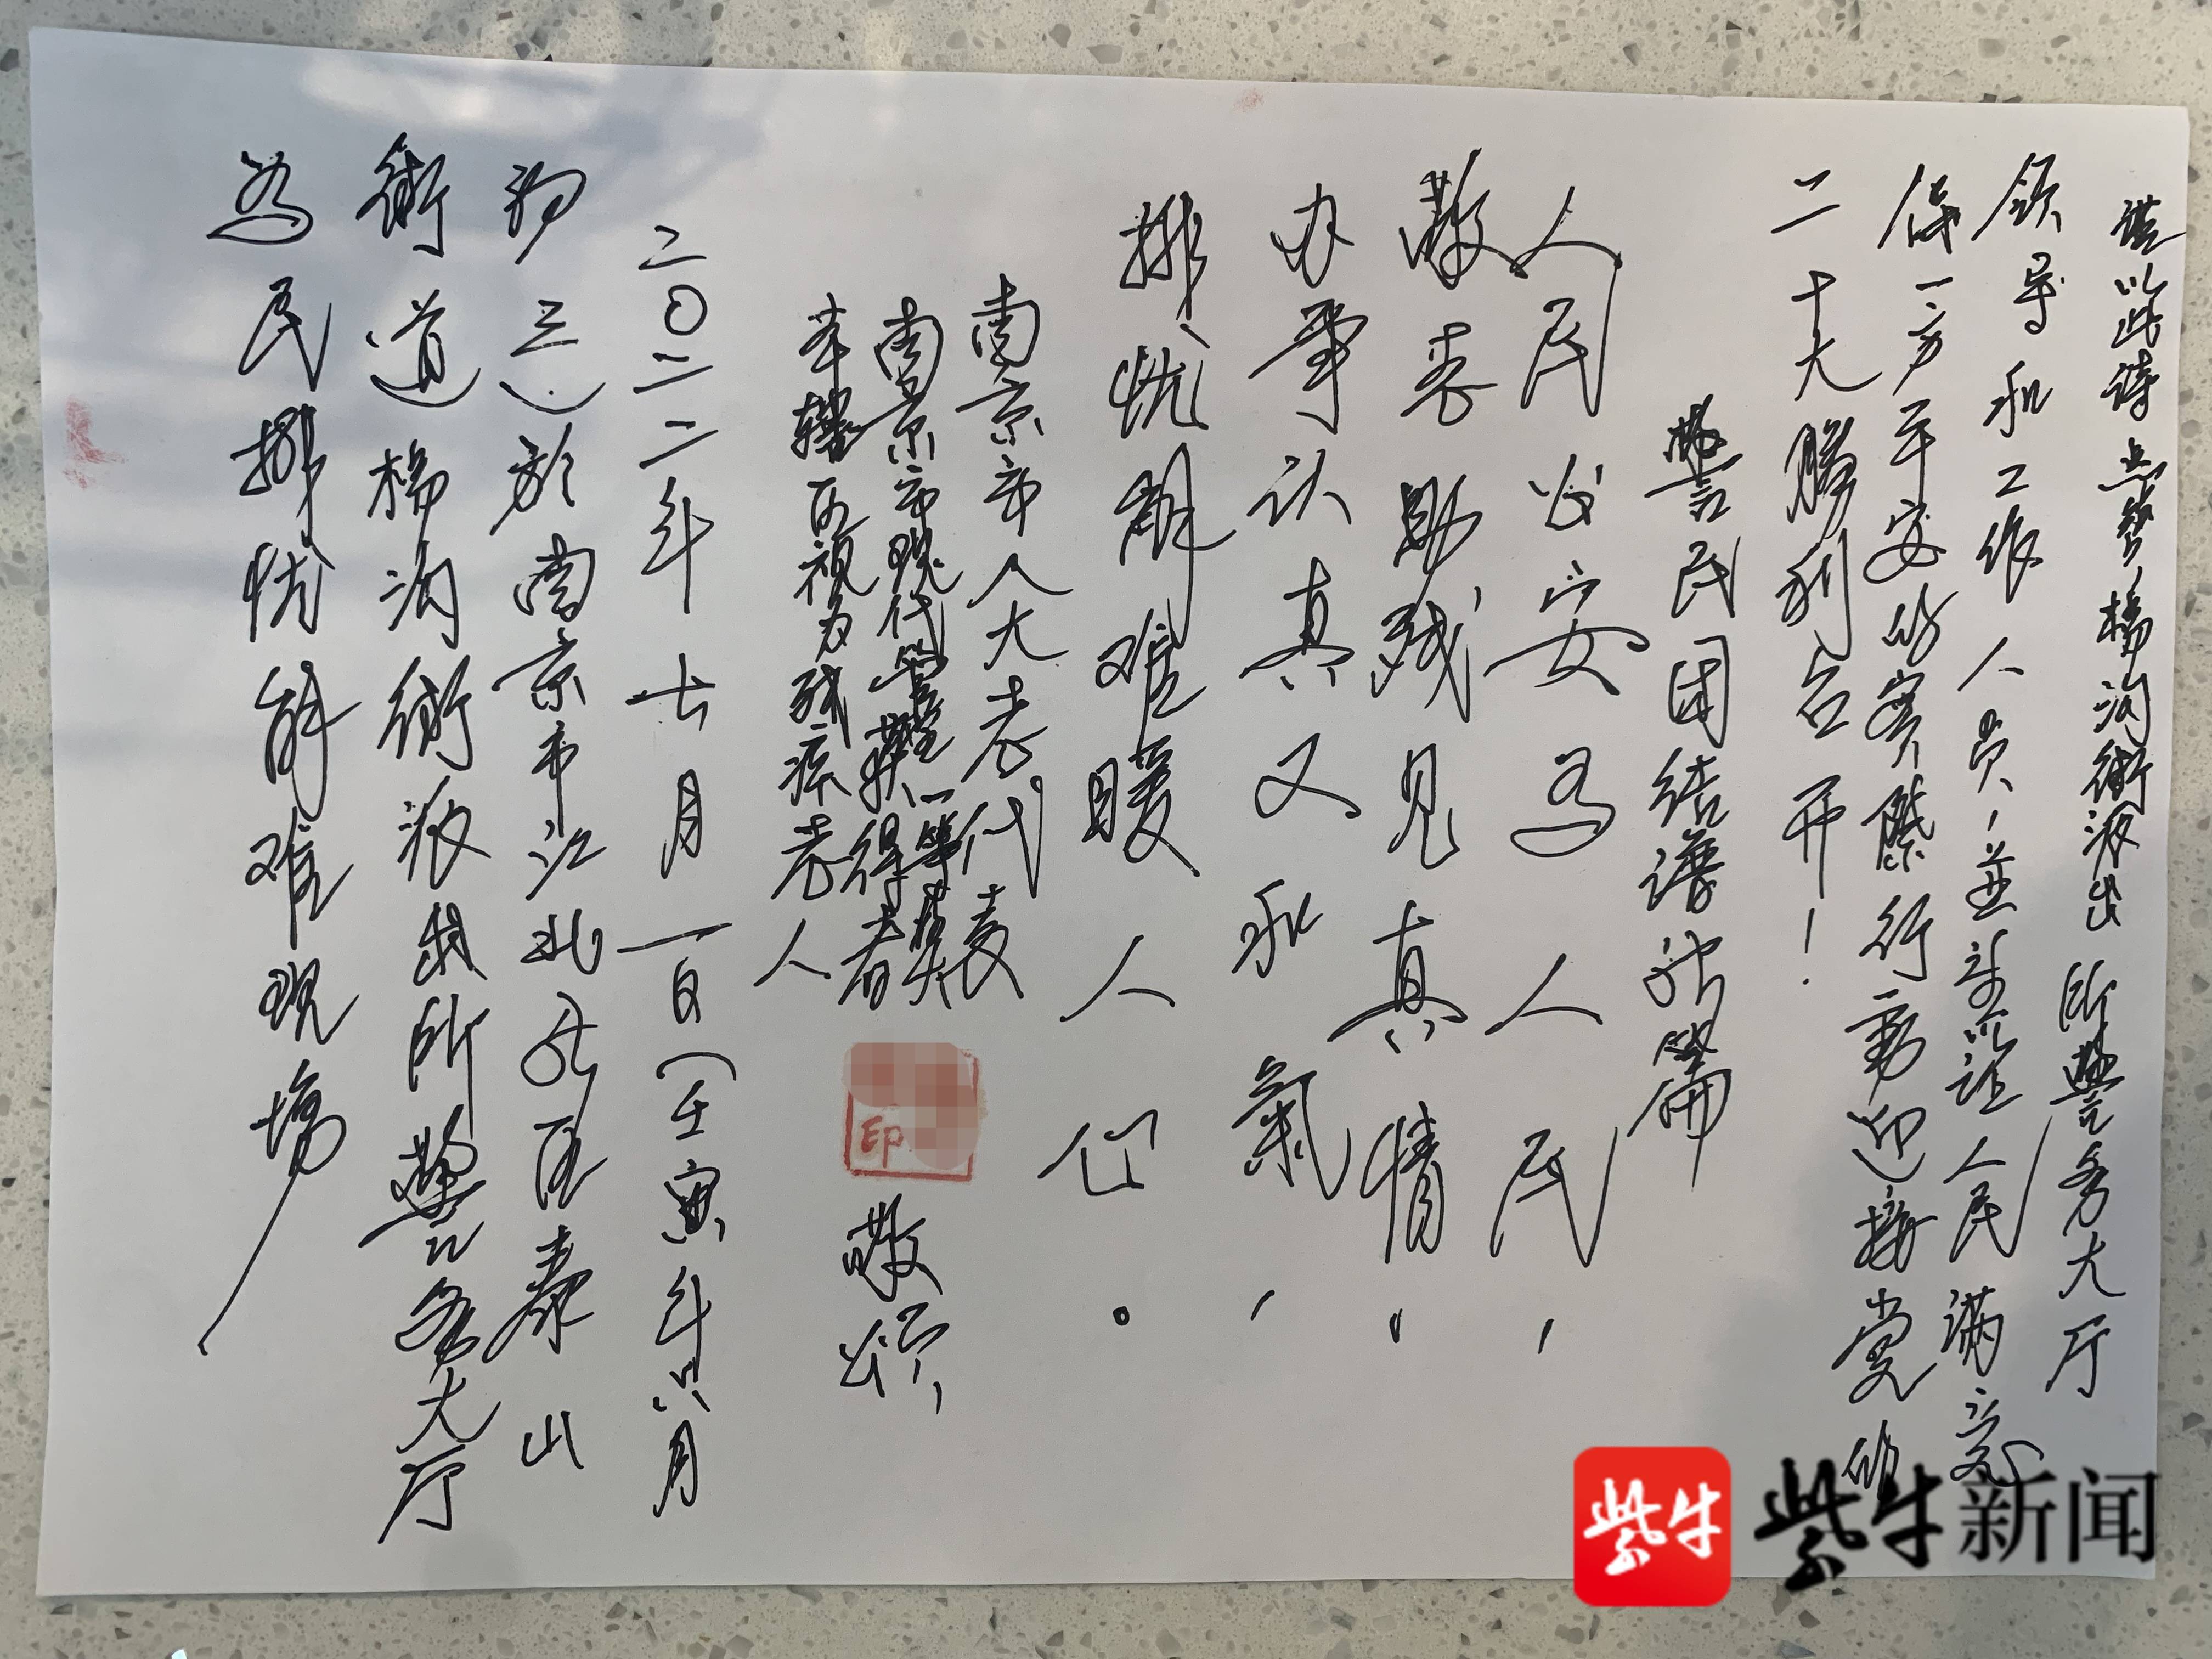 谨以此诗点赞桥沟街派出所警务大厅
领导和工作人员，並签以证人民满意
保一方平安的实際行動迎接党的
二十大勝利召开！
警民团结谱新篇
人民公安为人民，
敬老助残见真情，
办事认真又和氣，
排忧解难暖人心。
南京市人大老代表
南京市現代管理一等奖
获得者
本辖区视力残疾老人
印
敬颂
二〇二二年七月一日（壬寅年六月
初三）於南京市江北新区泰山
街道桥沟街派出所警务大厅
为民排忧解难現場
紫牛
紫牛新闻